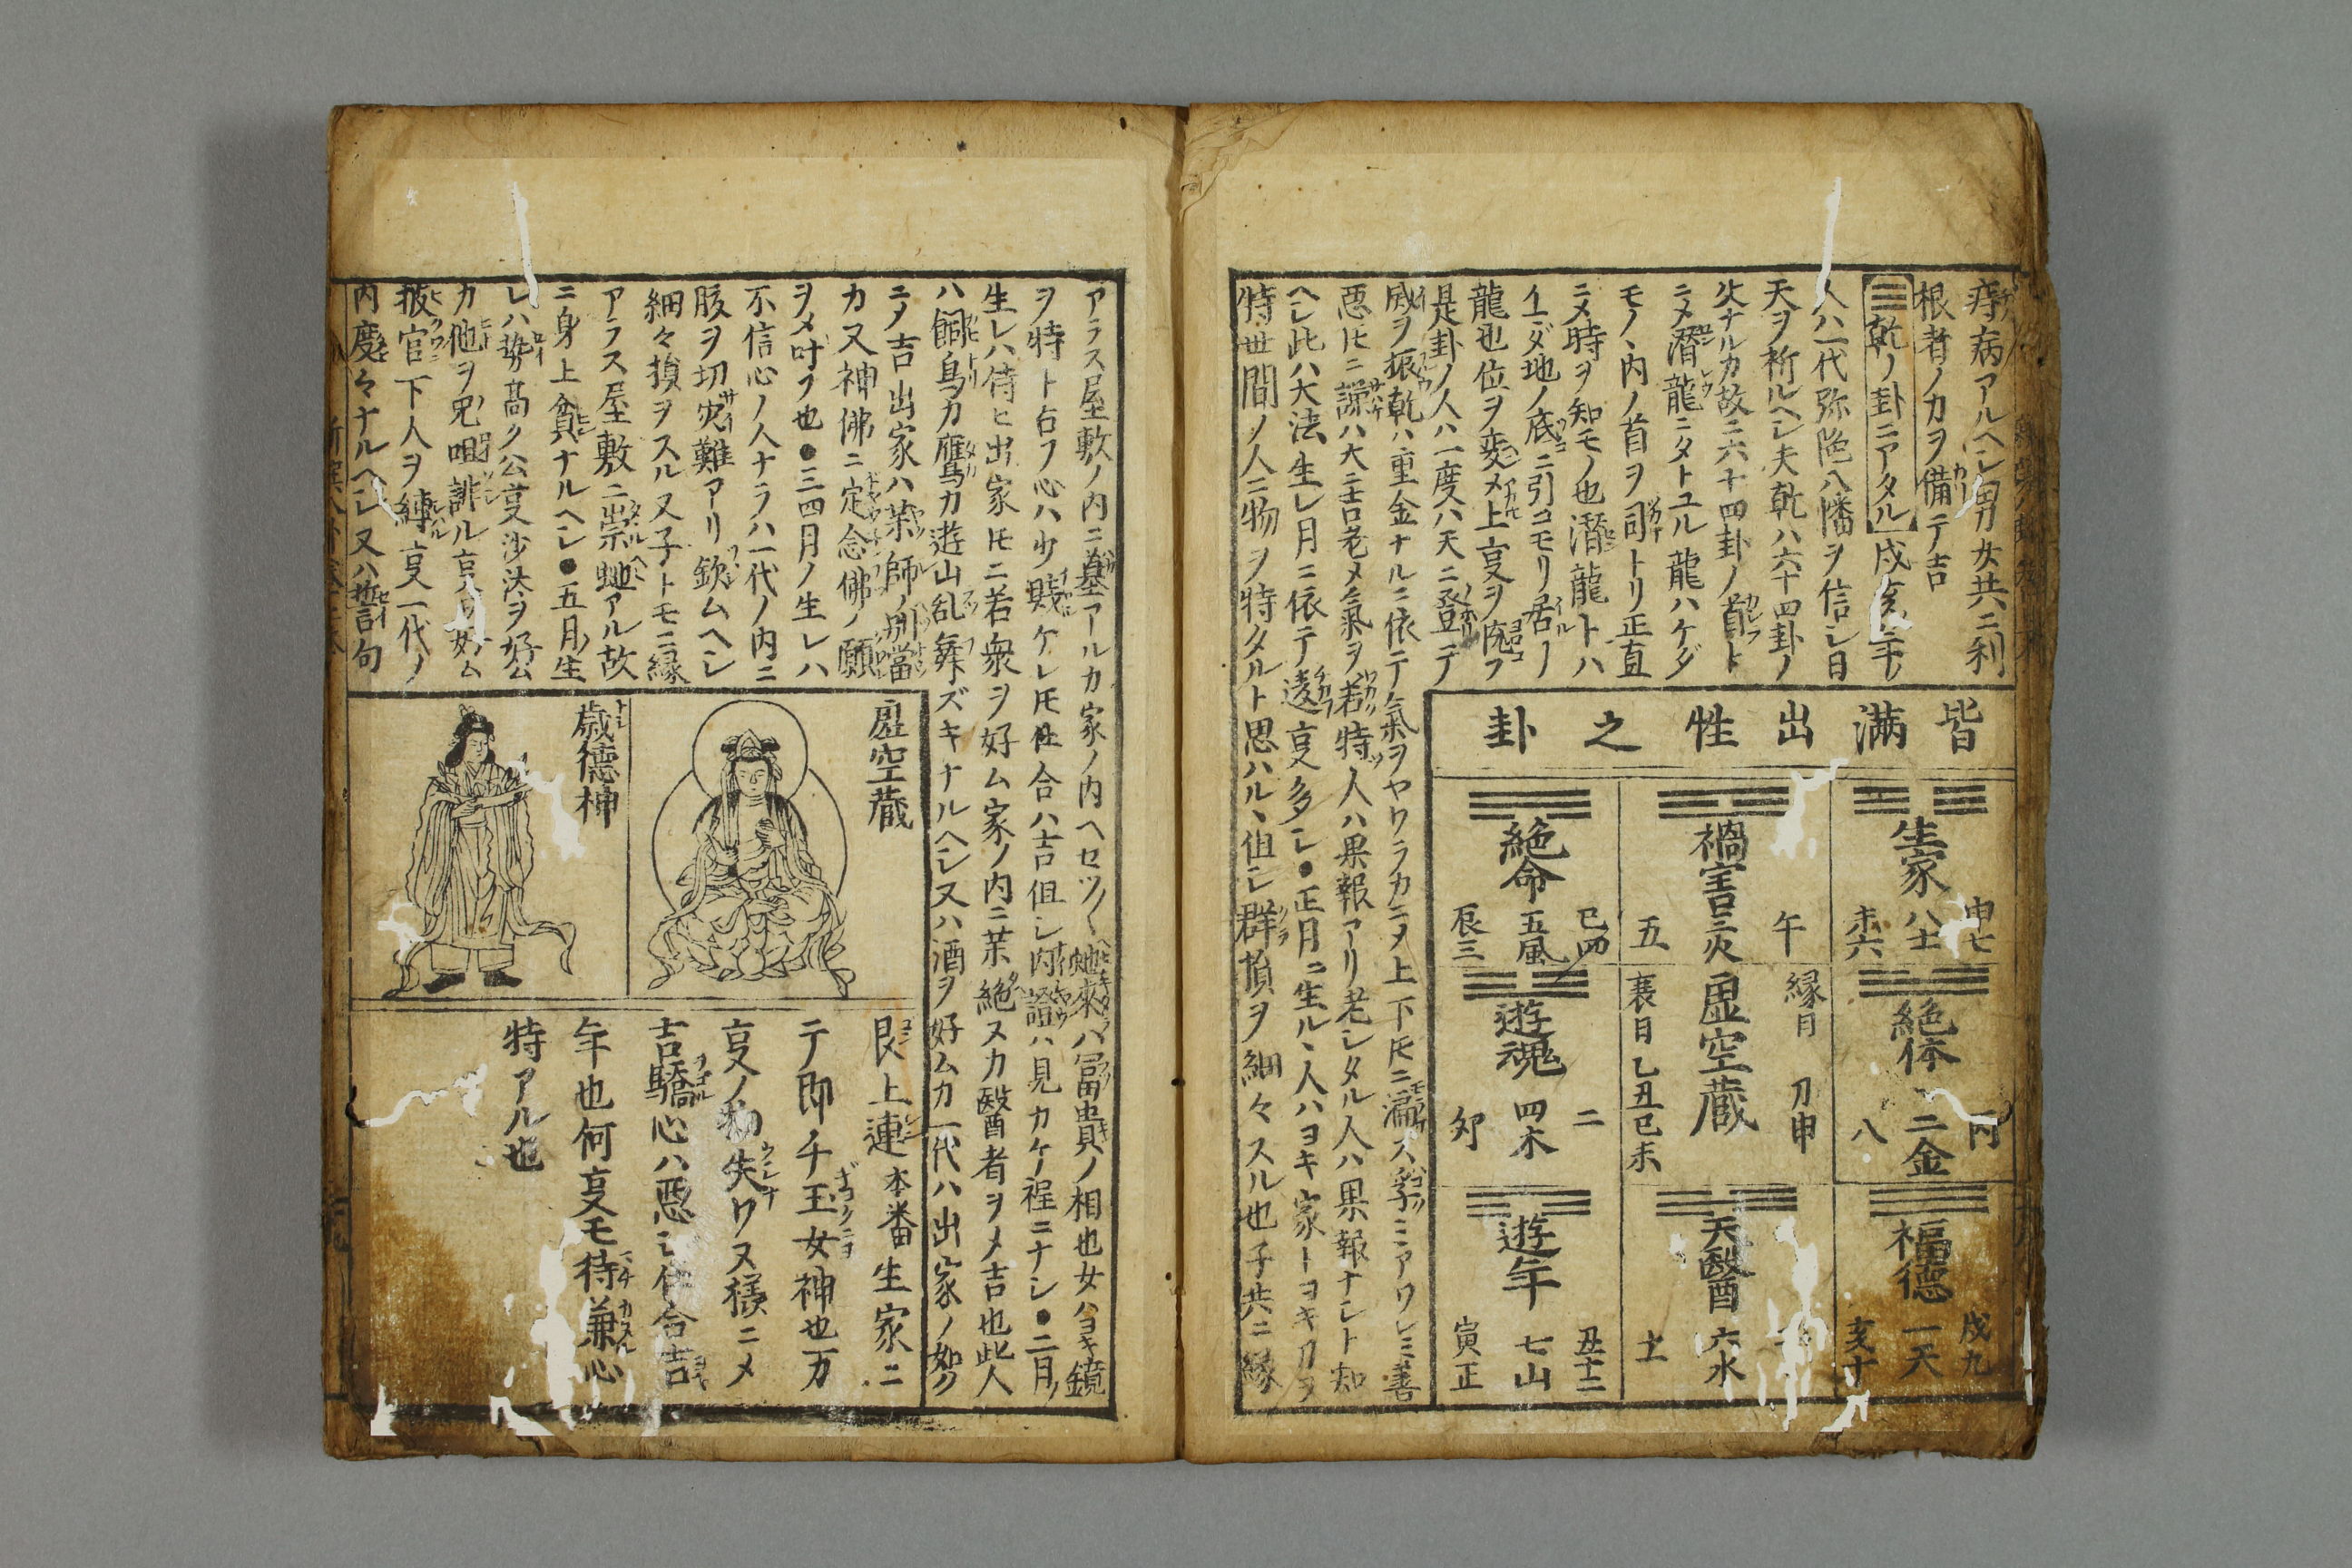 痔病アルヘシ男女共ニ利
根者ノカヲ備テ吉
☰乾ノ卦ニアタル戌亥ノ年ノ
人ハ一代弥陀八幡ヲ信シ日
天ヲ祈ルヘシ夫乾ハ六十四卦ノ
父ナルカ故ニ六十四卦ノ首ト
ニメ潜龍ニタトユル龍ハケダ
モノヽ内ノ首ヲ司トリ正直
ニメ時ヲ知モノ也潜龍トハ
イマダ地ノ底ニ引コモリ居ノ
龍也位ヲ変メ上亨ヲ
是卦ノ人ハ一度ハ天ニ登テ
威ヲ振乾ハ重金ナルニ依テ氣ヲヤワラカニメ上下モニ
悪モニ謙ハ大ニ吉老メ氣ヲ若特人ハ果報アリ老シタル人ハ果報ナシト知
ヘシ此ハ大法生レ月ニ依テ違亨多シ●正月ニ生ルヽ人ハヨキ家トヨキ刀ヲ
特世間ノ人ニ物ヲ特タルト思ハルヽ但シ群損ヲ細々スル也子共ニ縁
皆満出性之卦
生家 八土 申七 未六
禍害 三火 午 五
絶命 五風 巳四 辰三
絶体 二金 八
縁日
虚空蔵
衰日 乙丑巳未
遊魂 四木 二 卯
福徳 一天 戌九 亥十
天醫 六水
遊年 七山 丑十二 寅正
アラス屋敷ノ内ニ墓アールカ家ノ内ヘセツ〱蛇來ハ冨貴ノ相也女ハヨキ鏡
ヲ特ト占フ心ハ少賤ケレモ性合ハ吉但シ内證ハ見カケノ程ニナシ●二月ノ
生レハ侍ヒ出家モニ若衆ヲ好ム家ノ内ニ茉絶ヌカ醫者ヲメ吉也此人
ハ飼鳥カ鷹カ遊山乱舞ズキナルヘシ又ハ酒ヲ好ムカ一代ハ出家ノ如ク
ニメ吉出家ハ薬師ノ別當
カ又神佛ニ定念佛ノ願
ヲメ叶フ也●三四月ノ生レハ
不信心ノ人ナラハ一代ノ内ニ
股ヲ切災難アリ欽ムヘシ
細々損ヲスル又子トモニ縁
アラス屋敷ニ崇蛇アル故
ニ身上貧ナルヘシ●五月生
レハ勢高ク公亨沙汰ヲ好ム
カ他ヲ咒咀誹ル
披官下人ヲ縛亨一代ノ
内度々ナルヘシ又ハ誓言句
虚空蔵
歳德神
艮上連本番生家ニ
テ即ノチ玉女神也万
亨ノ物失ワヌ様ニメ
吉驕心ハ惡シ仕合吉
年也何亨モ待兼心
特アル也